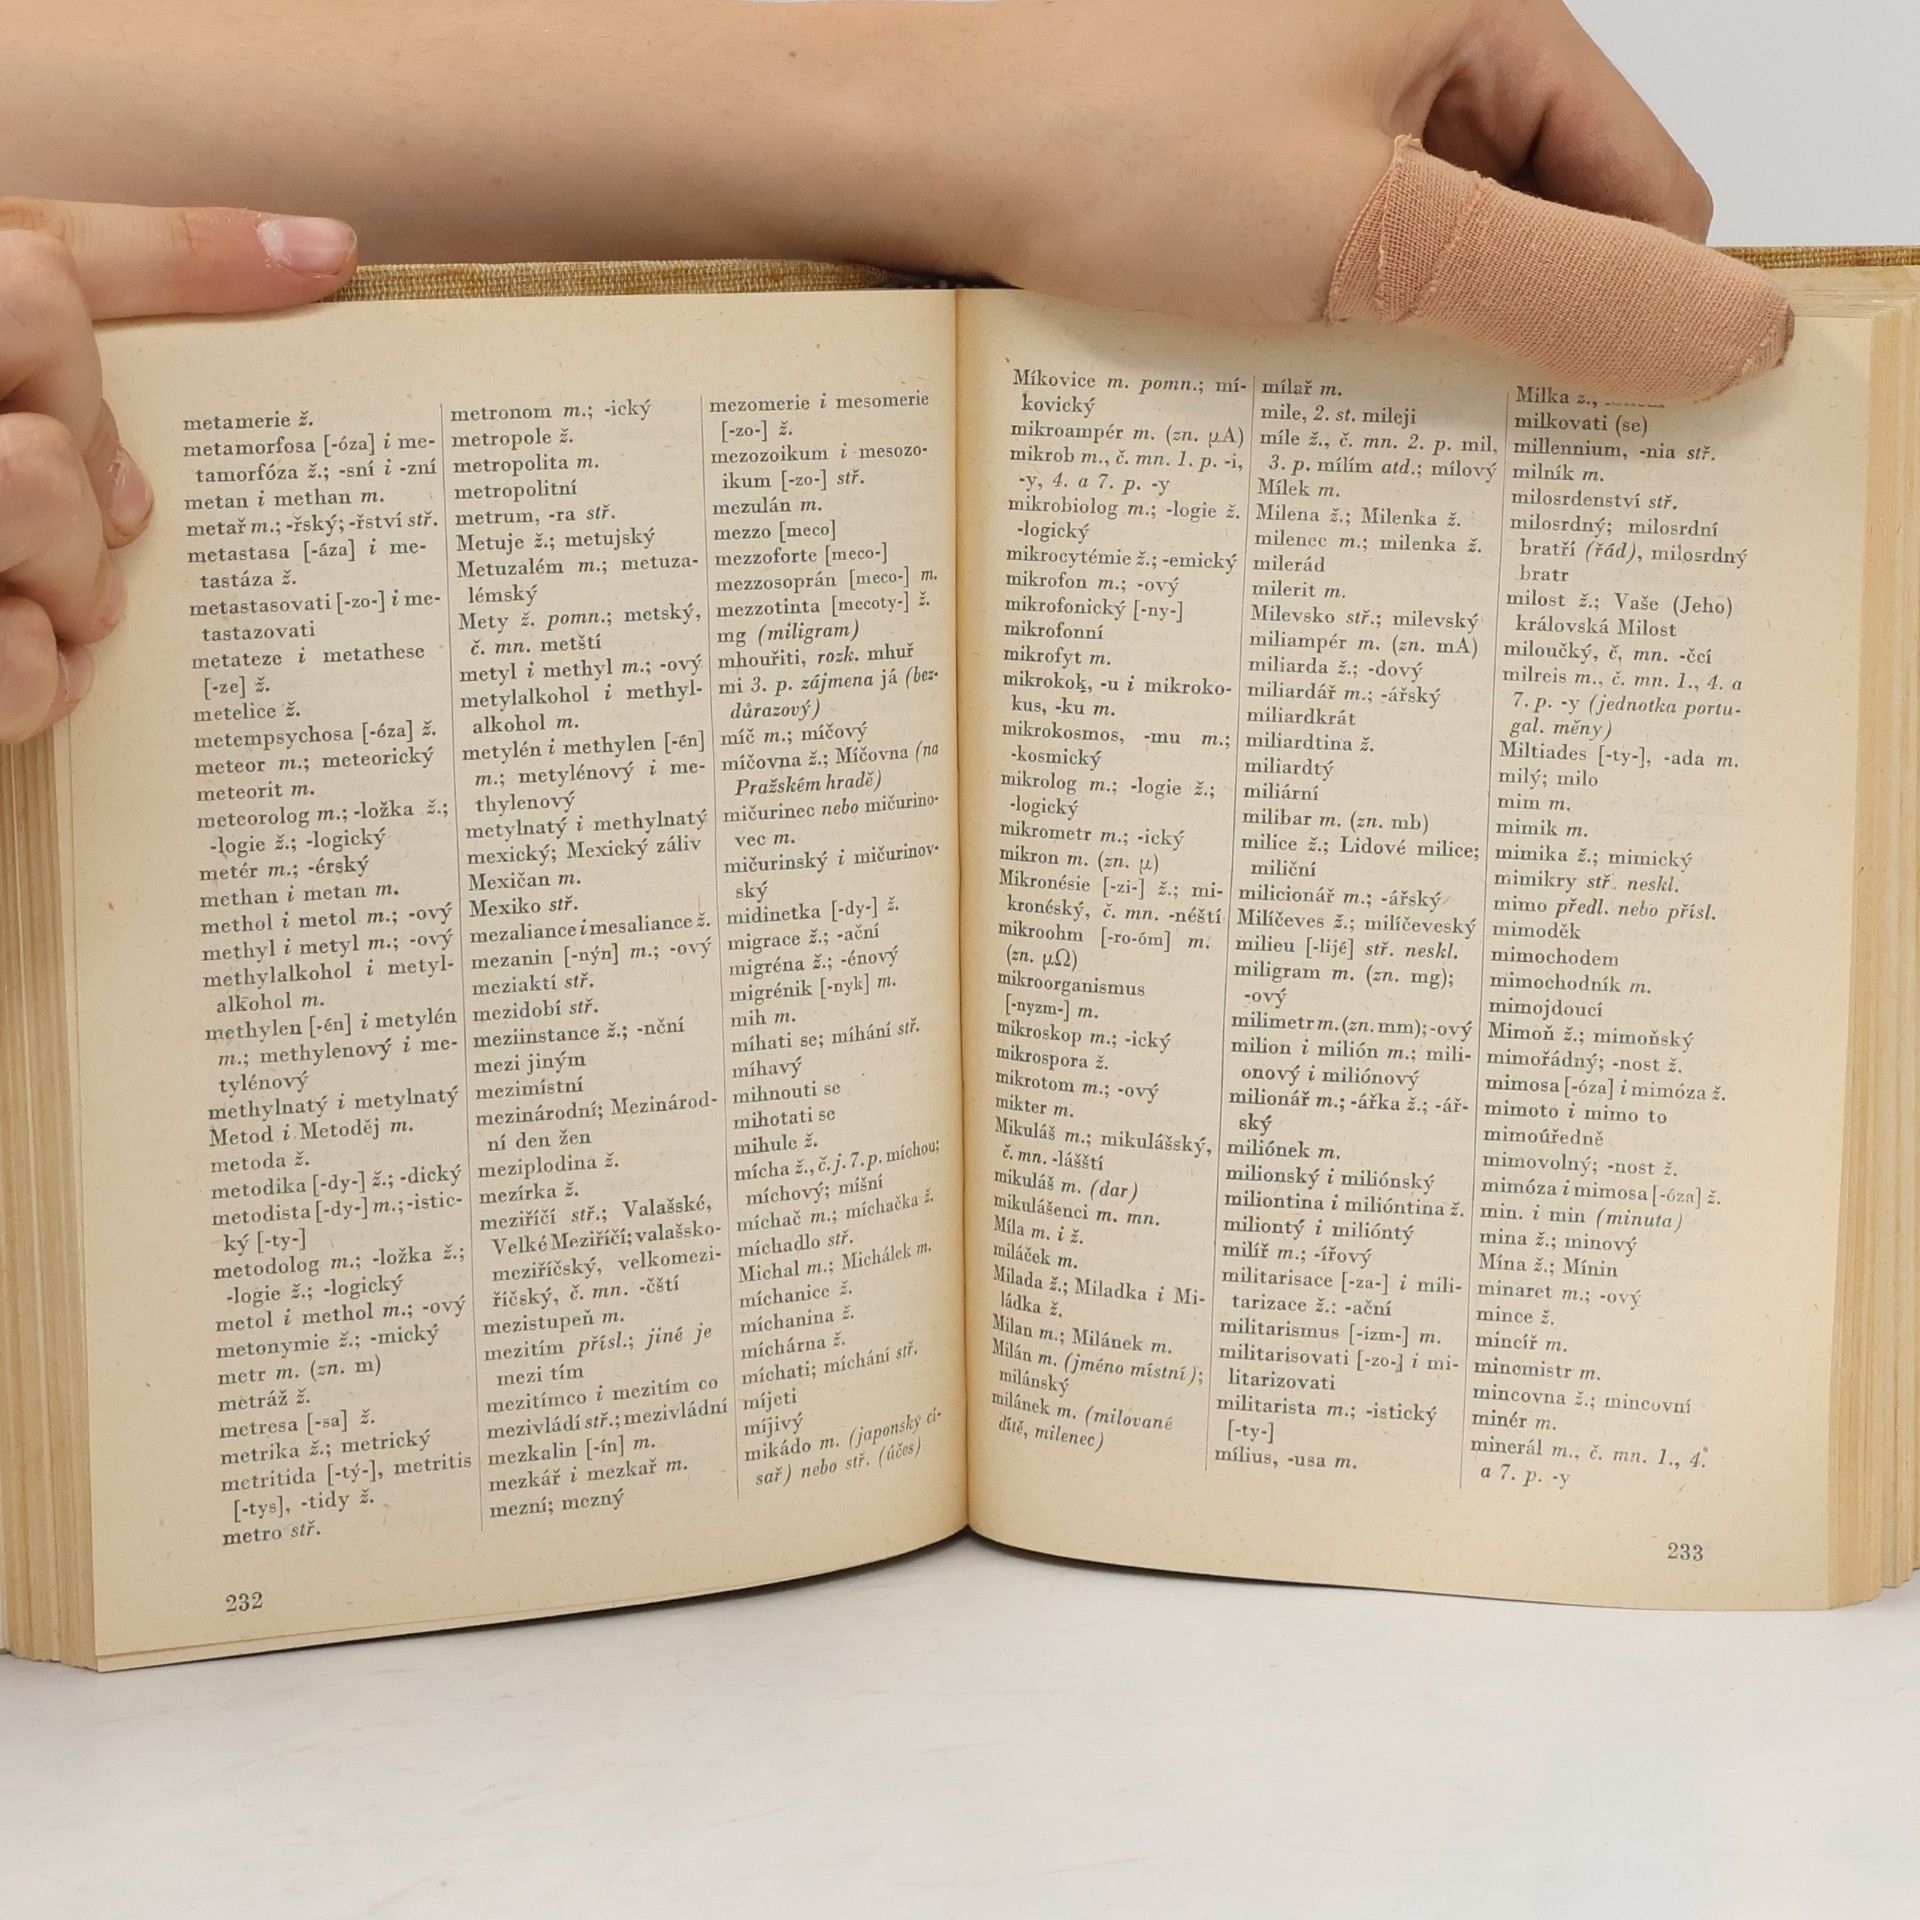 metamerie ž.
metamorfosa [-óza] i me-
tamorfóza ž.; -sní i -zní
metan i methan m.
metař m.; -řský; -řství stř.
metastasa [-áza] i me-
tastáza ž.
metastasovati [-zo-] i me-
tastazovati
metateze i metathese
[-ze] ž.
metelice ž.
metempsychosa [-óza] ž.
meteor m.; meteorický
meteorit m.
meteorolog m.; -ložka ž.;
-logie ž.; -logický
metér m.; -érský
methan i metan m.
methol i metol m.; -ový
methyl i metyl m.; -ový
methylalkohol i metyl-
alkohol m.
methylen [-én] i metylén
m.; methylenový i me-
tylénový
methylnatý i metylnatý
Metod i Metoděj m.
metoda ž.
metodika [-dy-] ž.; -dický
metodista [-dy-] m.; -istic-
ký [-ty-]
metodolog m.; -ložka ž.;
-logie ž.; -logický
metol i methol m.; -ový
metonymie ž.; -mický
metr m. (zn. m)
metráž ž.
metresa [-sa] ž.
metrika ž.; metrický
metritida [-tý-], metritis
[-tys], -tidy ž.
metro stř.
metronom m.; -ický
metropole ž.
metropolita m.
metropolitní
metrum, -ra stř.
Metuje ž.; metujský
Metuzalém m.; metuza-
lémský
Mety ž. pomn.; metský,
č. mn. metští
metyl i methyl m.; -ový
metylalkohol i methyl-
alkohol m.
metylén i methylen [-én]
m.; metylénový i me-
thylenový
metylnatý i methylnatý
mexický; Mexický záliv
Mexičan m.
Mexiko stř.
mezaliance i mesaliance ž.
mezanin [-nýn] m.; -ový
meziaktí stř.
mezidobí stř.
meziinstance ž.; -nční
mezi jiným
mezimístní
mezinárodní; Mezinárod-
ní den žen
meziplodina ž.
mezírka ž.
meziříčí stř.; Valašské,
Velké Meziříčí; valašsko-
meziříčský, velkomezi-
říčský, č. mn. -čští
mezistupeň m.
mezitím přísl.; jiné je
mezi tím
mezitímco i mezitím co
mezivládí stř.; mezivládní
mezkalin [-ín] m.
mezkář i mezkař m.
mezní; mezný
mezomerie i mesomerie
[-zo-] ž.
mezozoikum i mesozo-
ikum [-zo-] stř.
mezulán m.
mezzo [meco]
mezzoforte [meco-]
mezzosoprán [meco-] m.
mezzotinta [mecoty-] ž.
mg (miligram)
mhouřiti, rozk. mhuř
mi 3. p. zájmena já (bez-
důrazový)
míč m.; míčový
míčovna ž.; Míčovna (na
Pražském hradě)
mičurinec nebo mičurino-
vec m.
mičurinský i mičurinov-
ský
midinetka [-dy-] ž.
migrace ž.; -ační
migréna ž.; -énový
migrénik [-nyk] m.
mih m.
míhati se; míhání stř.
míhavý
mihnouti se
mihotati se
mihule ž.
mícha ž., č. j. 7. p. míchou;
míchový; míšní
míchač m.; míchačka ž.
míchadlo stř.
Michal m.; Michálek m.
míchanice ž.
míchanina ž.
míchárna ž.
míchati; míchání stř.
míjeti
míjivý
mikádo m. (japonský cí-
sař) nebo stř. (účes)
232
Míkovice m. pomn.; mí-
kovický
mikroampér m. (zn. μA)
mikrob m., č. mn. 1. p. -i,
-y, 4. a 7. p. -y
mikrobiolog m.; -logie ž.
-logický
mikrocytémie ž.; -emický
mikrofon m.; -ový
mikrofonický [-ny-]
mikrofonní
mikrofyt m.
mikrokok, -u i mikroko-
kus, -ku m.
mikrokosmos, -mu m.;
-kosmický
mikrolog m.; -logie ž.;
-logický
mikrometr m.; -ický
mikron m. (zn. μ)
Mikronésie [-zi-] ž.; mi-
kronéský, č. mn. -néští
mikroohm [-ro-óm] m.
(zn. μΩ)
mikroorganismus
[-nyzm-] m.
mikroskop m.; -ický
mikrospora ž.
mikrotom m.; -ový
mikter m.
Mikuláš m.; mikulášský,
č. mn. -lášští
mikuláš m. (dar)
mikulášenci m. mn.
Míla m. i ž.
miláček m.
Milada ž.; Miladka i Mi-
ládka ž.
Milan m.; Milánek m.
Milán m. (jméno místní);
milánský
milánek m. (milované
dítě, milenec)
mílař m.
mile, 2. st. mileji
míle ž., č. mn. 2. p. mil,
3. p. mílím atd.; mílový
Mílek m.
Milena ž.; Milenka ž.
milenec m.; milenka ž.
milerád
milerit m.
Milevsko stř.; milevský
miliampér m. (zn. mA)
miliarda ž.; -dový
miliardář m.; -ářský
miliardkrát
miliardtina ž.
miliardtý
miliární
milibar m. (zn. mb)
milice ž.; Lidové milice;
miliční
milicionář m.; -ářský
Milíčeves ž.; milíčeveský
milieu [-lijé] stř. neskl.
miligram m. (zn. mg);
-ový
milimetr m. (zn. mm); -ový
milion i milión m.; mili-
onový i miliónový
milionář m.; -ářka ž.; -ář-
ský
miliónek m.
milionský i miliónský
miliontina i milióntina ž.
miliontý i milióntý
milíř m.; -ířový
militarisace [-za-] i mili-
tarizace ž.: -ační
militarismus [-izm-] m.
militarisovati [-zo-] i mi-
litarizovati
militarista m.; -istický
[-ty-]
mílius, -usa m.
Milka ž.,
milkovati (se)
millennium, -nia stř.
milník m.
milosrdenství stř.
milosrdný; milosrdní
bratří (řád), milosrdný
bratr
milost ž.; Vaše (Jeho)
královská Milost
miloučký, č. mn. -čcí
milreis m., č. mn. 1., 4. a
7. p. -y (jednotka portu-
gal. měny)
Miltiades [-ty-], -ada m.
milý; milo
mim m.
mimik m.
mimika ž.; mimický
mimikry stř. neskl.
mimo předl. nebo přísl.
mimoděk
mimochodem
mimochodník m.
mimojdoucí
Mimoň ž.; mimoňský
mimořádný; -nost ž.
mimosa [-óza] i mimóza ž.
mimoto i mimo to
mimoúředně
mimovolný; -nost ž.
mimóza i mimosa [-óza] ž.
min. i min (minuta)
mina ž.; minový
Mína ž.; Mínin
minaret m.; -ový
mince ž.
mincíř m.
mincmistr m.
mincovna ž.; mincovní
minér m.
minerál m., č. mn. 1., 4.
a 7. p. -y
233